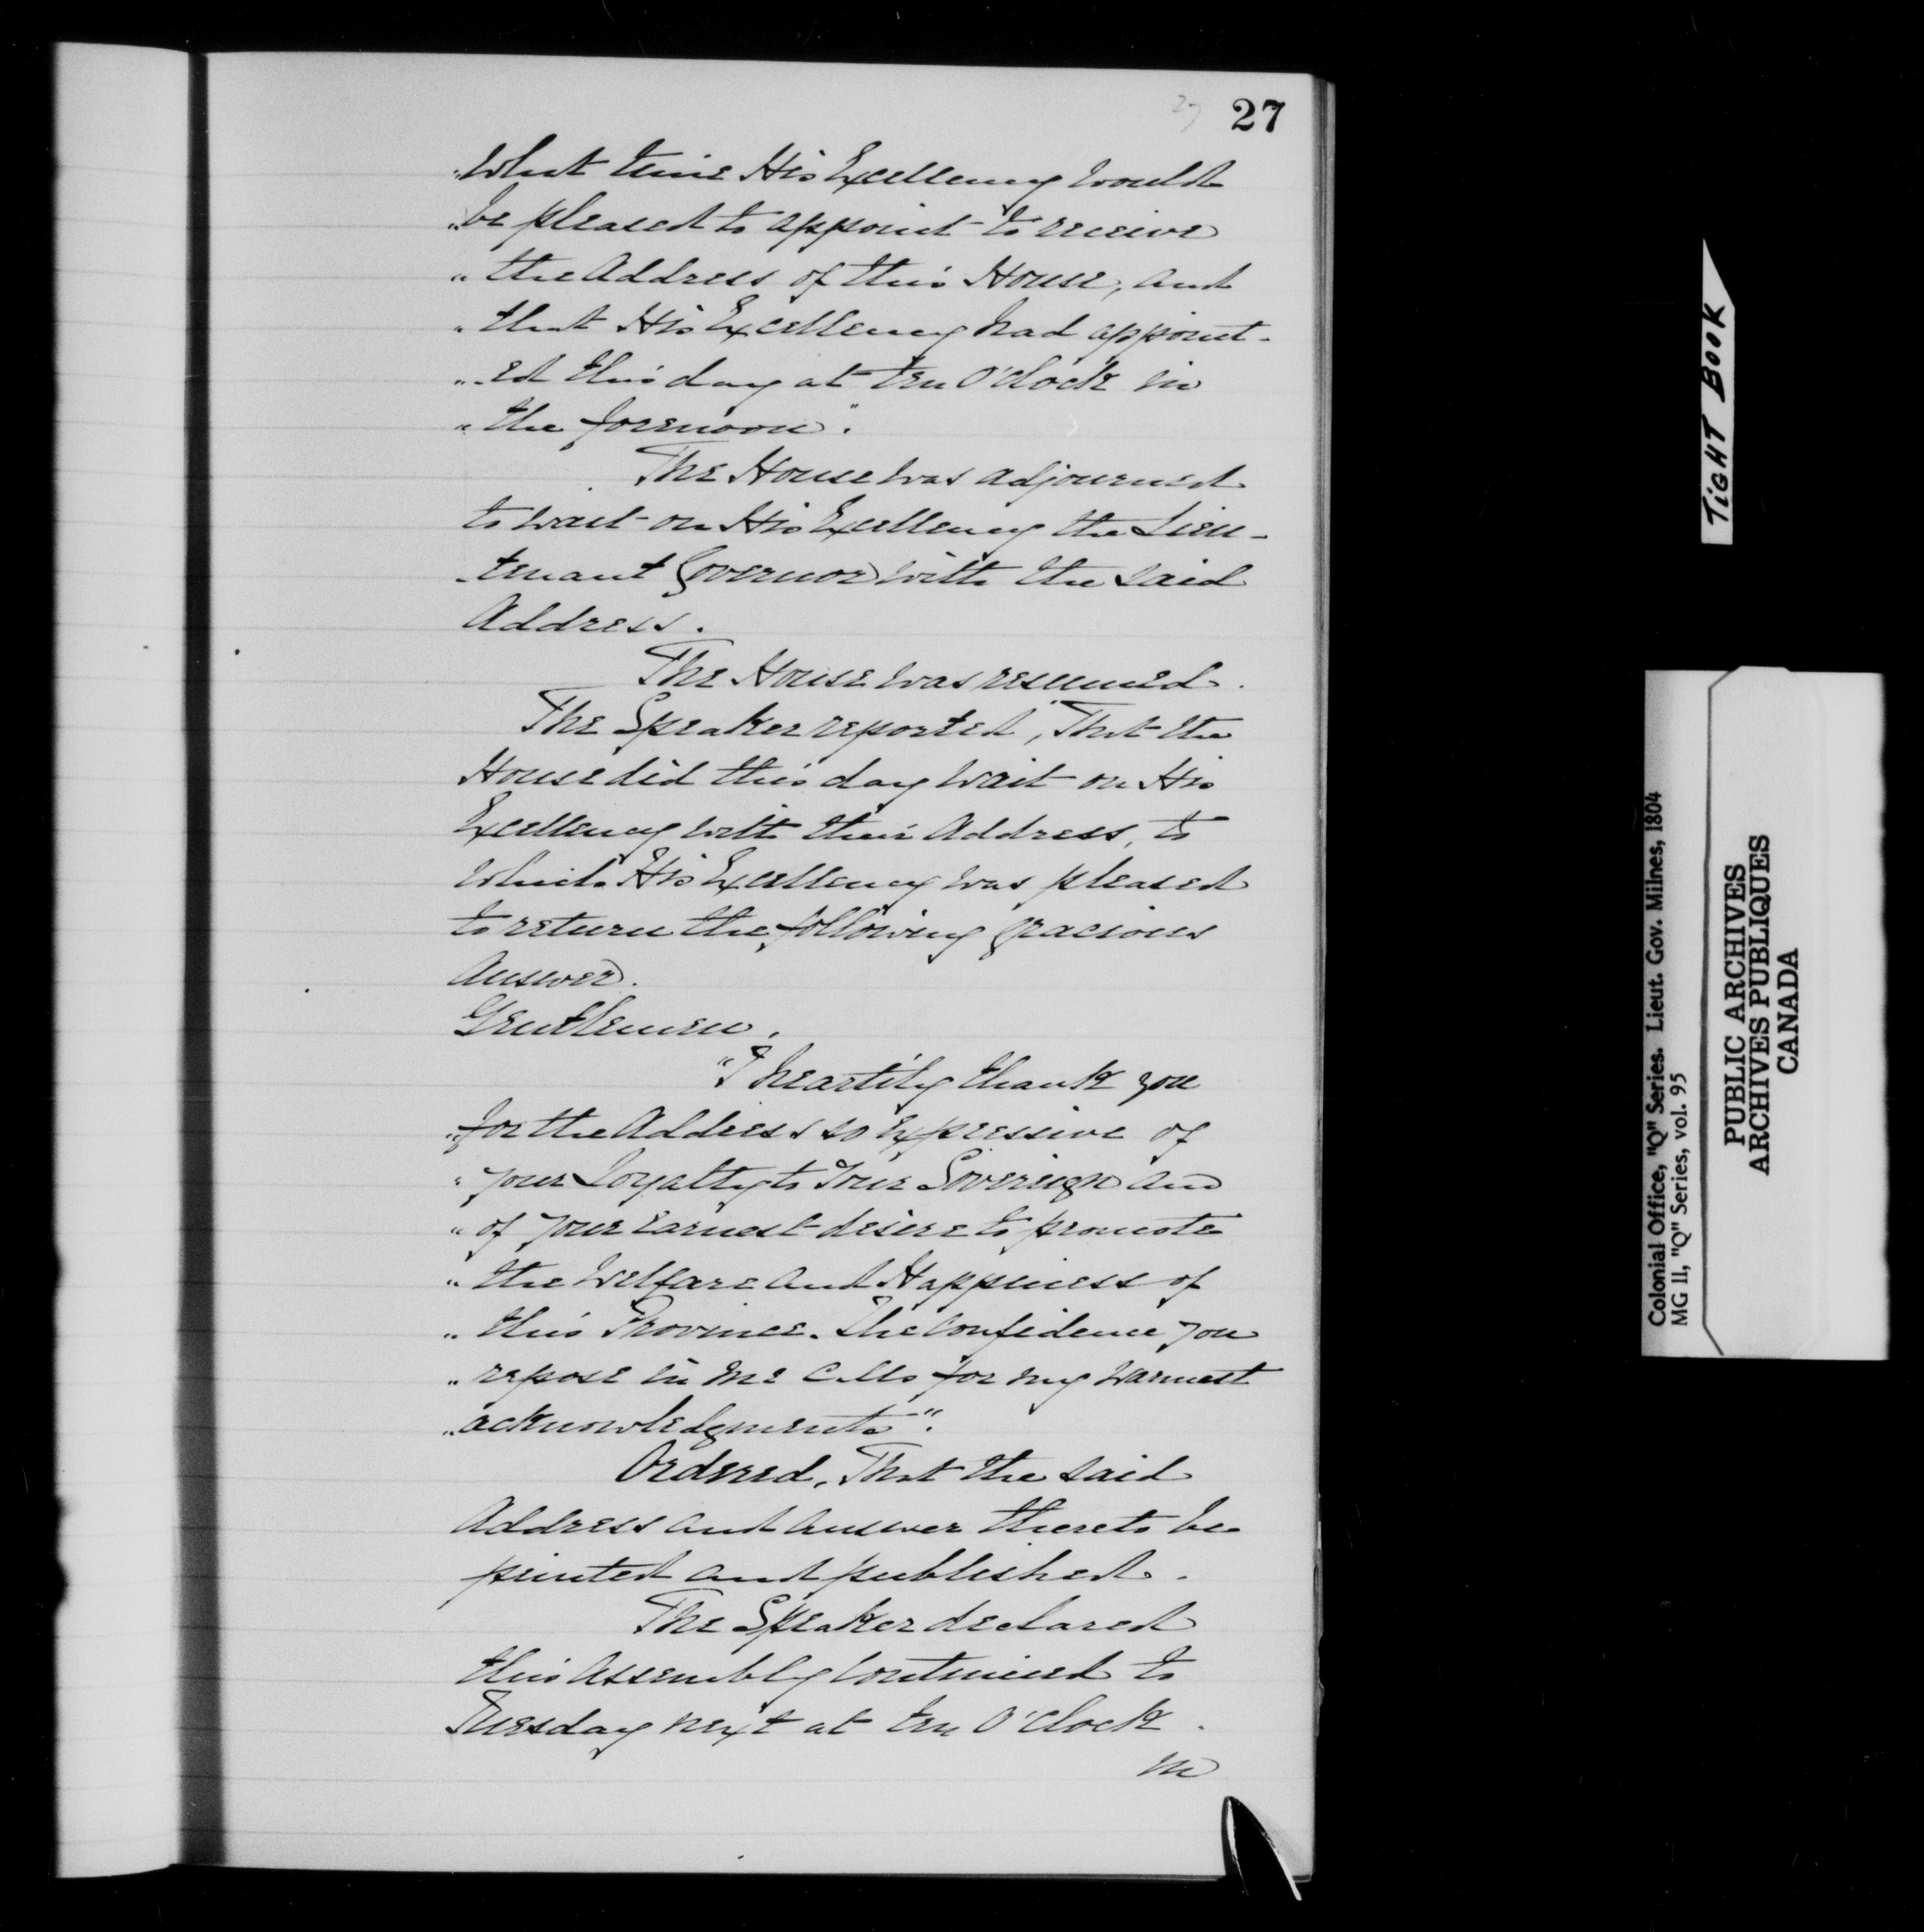 27 27
"What time His Excellency would
"be pleased to appoint to receive
"the Address of this House, and
"that His Excellency had appoint-
"ed this day at ten O'Clock in
"the forenoon".
The House was adjourned
to wait on His Excellency the Lieu-
tenant Governor with the said
Address.
The House was resumed.
The Speaker reported, "That the
House did this day wait on His
Excellency with their Address, to
which His Excellency was pleased
to return the following gracious
Answer.
Gentlemen,
"I heartily thank you
"for the Address so expressive of
"your Loyalty to Your Sovereign and
"of your earnest desire to promote
"the Welfare and Happiness of
"this Province. The Confidence you
"repose in me calls for my warmest
"acknowledgments".
Ordered, That the said
Address and answer thereto be
printed and published.
The Speaker declared
this Assembly continued to
Tuesday next at ten O'Clock.
in
TIGHT BOOK
Colonial Office, "Q" Series. Lieut. Gov. Milnes, 1804
MG 11, "Q" Series, vol. 95
PUBLIC ARCHIVES
ARCHIVES PUBLIQUES
CANADA